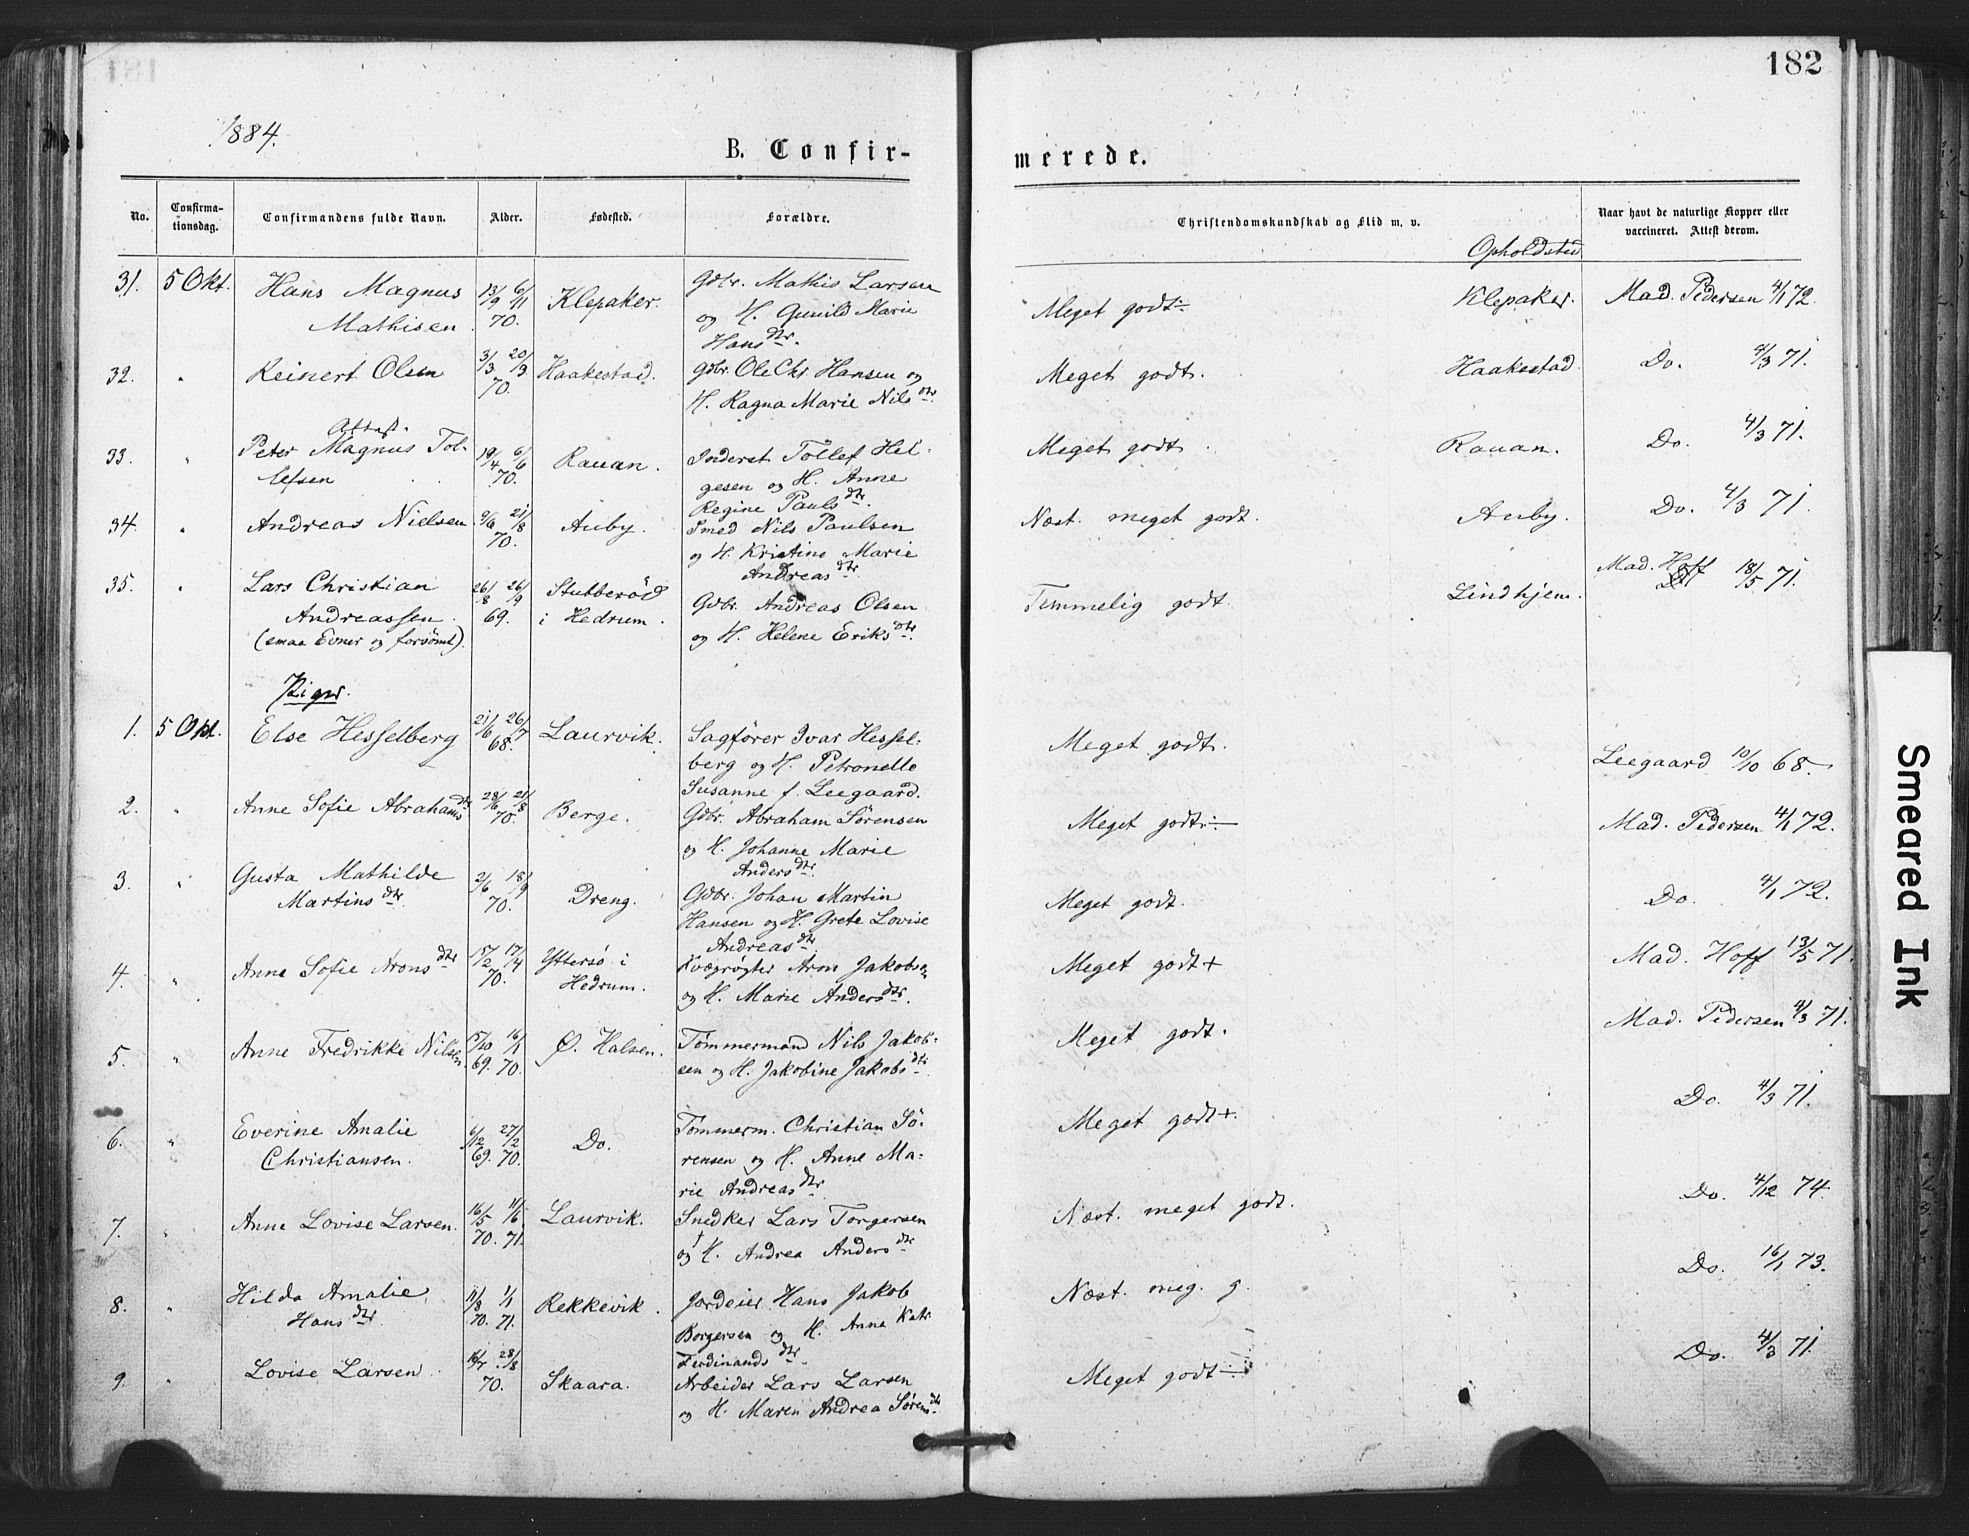 182
1884.
B. Confir-
merede.
No.
Confirma-
tionsdag.
Confirmandens fulde Navn.
Alder.
Fødested.
Forældre.
Christendomskundskab og Flid m. v.
Opholdsted
Naar havt de naturlige Kopper eller
vaccineret. Attest derom.
31. 5 Okt. Hans Magnus 13/9 6/11 Klepaker. Gdbr. Mathis Larsen
Mathisen 70. og H. Gunild Marie
Hansdtr.
Meget godt÷ Klepaker. Mad. Pedersen 4/1 72.
32. " Reinert Olsen 3/3 20/3 Haakestad. Gdbr. Ole Chr. Hansen og
70. H. Ragna Marie Nilsdtr.
Meget godt. Haakestad. Do. 4/3 71.
Attest.
33. " Peter Magnus Tol- 19/4 6/6 Rauan. Inderst Tollef Hel-
lefsen 70. gesen og H. Anne
Regine Paulsdtr.
Meget godt. Rauan. Do. 4/3 71.
34. " Andreas Nielsen 9/6 21/8 Auby. Smed Nils Paulsen
70. og H. Kristine Marie
Andreasdtr.
Næst. meget godt. Auby. Do. 4/3 71.
35. " Lars Christian 26/8 26/9 Stubberød Gdbr. Andreas Olsen
Andreassen. 69. i Hedrum. og H. Helene Eriksdtr.
(smaa Evner og forsømt).
Temmelig godt. Lindhjem. Mad. Hoff 18/5 71.
Piger.
1. 5 Okt. Else Hesselberg 21/6 26/7 Laurvik. Sagfører Ivar Hessel-
68. berg og H. Petronelle
Susanne f. Leegaard.
Meget godt. Leegaard 10/10 68.
2. " Anne Sofie Abrahamsdtr 28/6 21/8 Berge. Gdbr. Abraham Sørensen
70. og H. Johanne Marie
Andersdtr.
Meget godt÷ Mad. Pedersen 4/1 72.
3. " Gusta Mathilde 2/6 18/9 Dreng. Gdbr. Johan Martin
Martinsdtr. 70. Hansen og H. Grete Lovise
Andreasdtr.
Meget godt. Do. 4/1 72.
4. " Anne Sofie Aronsdtr 15/2 17/4 Yttersø i Kvægrøgter Aron Jakobsen
70. Hedrum. og H. Marie Andersdtr.
Meget godt+ Mad. Hoff 13/5 71.
5. " Anne Fredrikke Nilsen. 15/10 16/1 Ø. Halsen. Tømmermand Nils Jakob-
69. 70. sen og H. Jakobine Jakobsdtr.
Meget godt. Mad. Pedersen 4/3 71.
6. " Everine Amalie 6/12 27/2 Do. Tømmerm. Christian Sø-
Christiansen. 69. 70. rensen og H. Anne Ma-
rie Andreasdtr.
Meget godt+. Do. 4/3 71.
7. " Anne Lovise Larsen. 16/5 11/6 Laurvik. Snedker Lars Torgersen
70. 71. og H. Andrea Andersdtr.
Næst. meget godt. Do. 4/12 74.
8. " Hilda Amalie 11/8 1/1 Rekkevik. Jordeier Hans Jakob
Hansdtr. 70. 71. Borgersen og H. Anne Katr.
Ferdinandsdtr.
Næst. meg. g. Do. 16/1 73.
9. " Lovise Larsen. 16/7 28/8 Skaara. Arbeider Lars Larsen
70. og H. Maren Andrea Sørensdtr.
Meget godt÷ Do. 4/3 71.
Smeared Ink